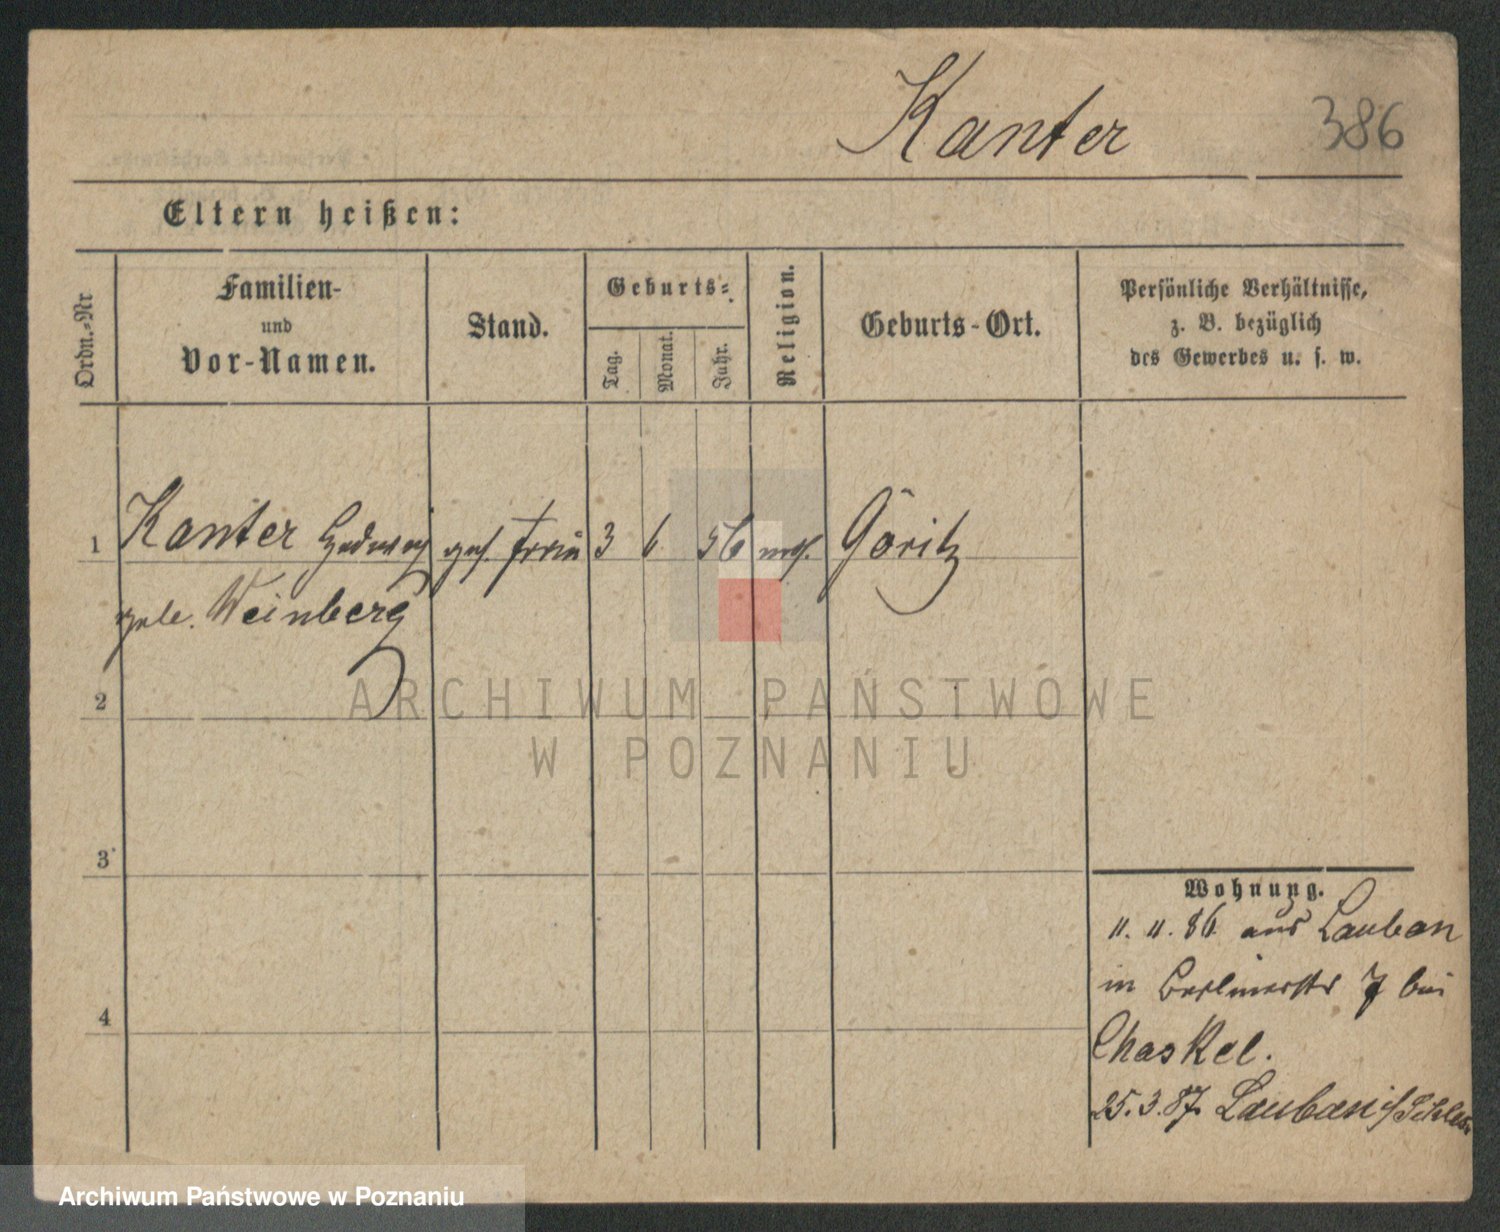 Kanter 386
Eltern heißen:
Ordn.-Nr
Familien-
und
Vor-Namen.
Stand.
Geburts-
Tag.
Monat.
Jahr.
Religion.
Geburts-Ort.
Persönliche Verhältnisse,
z. B. bezüglich
des Gewerbes u. s. w.
1 Kanter Hedwig gesch. Frau 3 6 56 mos. Göritz
geb. Weinberg
2
3
4
Wohnung.
11. 11. 86 aus Lauban
in Berlinerstr 7 bei
Chaskel.
25. 3. 87. Lauban i/Schles.
ARCHIWUM PAŃSTWOWE
W POZNANIU
Archiwum Państwowe w Poznaniu